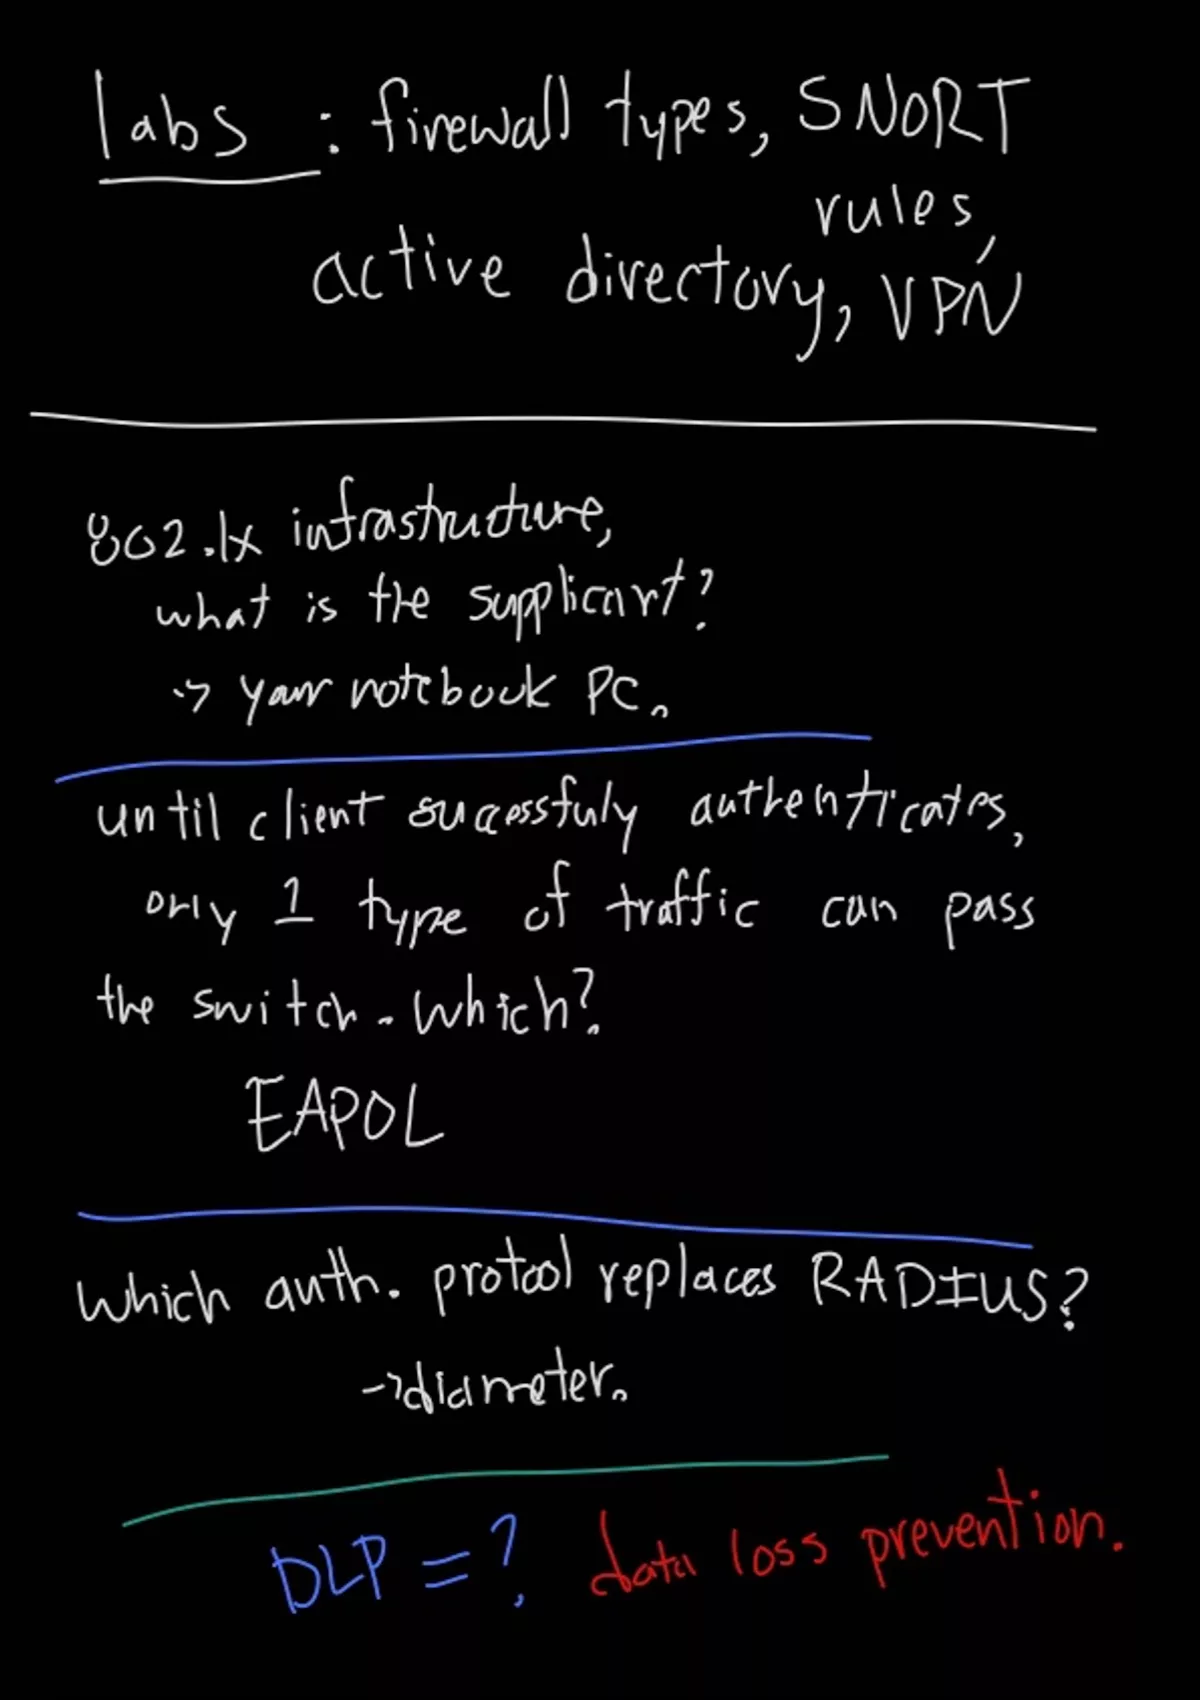 labs : firewall types, SNORT
rules,
active directory, VPN
802.1x infrastructure,
what is the supplicant?
-> your notebook PC.
until client sucessfuly authenticates,
only 1 type of traffic can pass
the switch. which?
EAPOL
which auth. protocol replaces RADIUS?
->diameter.
DLP = ? data loss prevention.